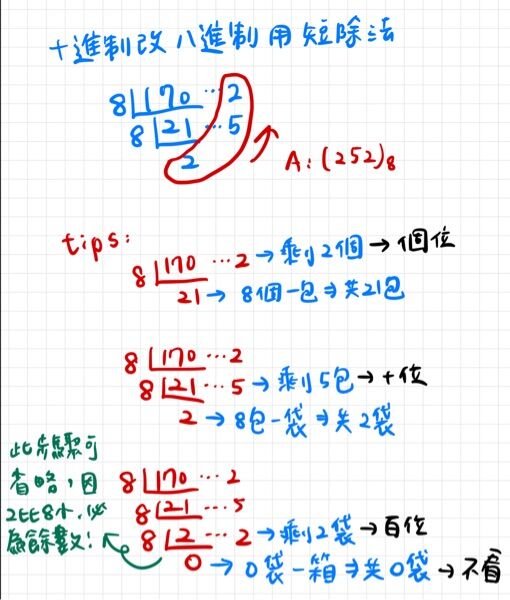 十進制改八進制用短除法
8 170 ... 2
8 21 ... 5
2
A: (252)₈
tips:
8 170 ... 2 → 剩2個 → 個位
21 → 8個一包 ⇒ 共21包
8 170 ... 2
8 21 ... 5 → 剩5包 → 十位
2 → 8包一袋 ⇒ 共2袋
此步驟可
省略,因
2比8小,必
為餘數!
8 170 ... 2
8 21 ... 5
8 2 ... 2 → 剩2袋 → 百位
0 → 0袋一箱 ⇒ 共0袋 → 不看